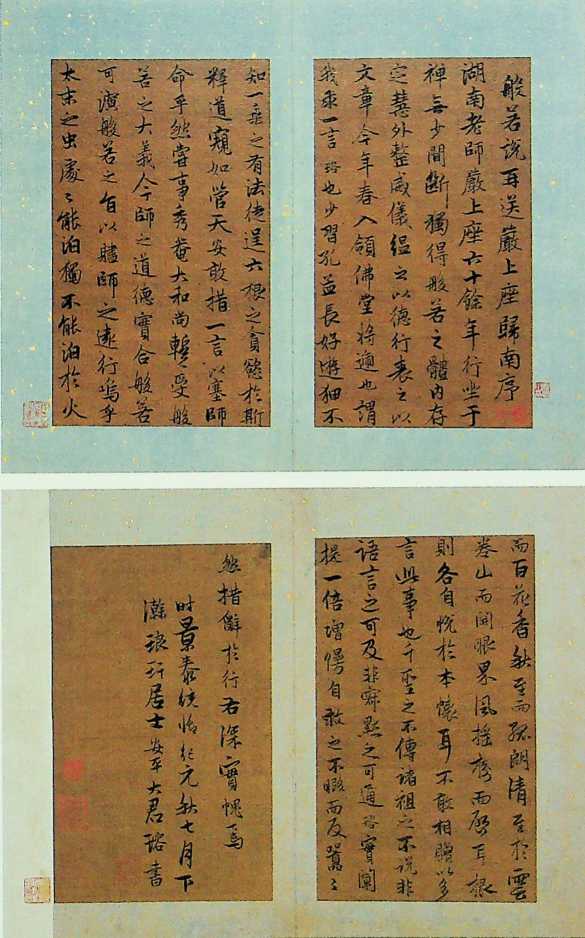 般若説再送嚴上座歸南序
湖南老師嚴上座六十餘年行坐于
禪無少間斷獨得般若之體内存
定慧外整威儀緼之以德行表之以
文章今年春入領佛堂將適也謂
我乘一言珞也少習孔孟長好遊猶不
知一乘之有法徒逞六根之貪慾於斯
釋道窺如管天安敢措一言以塞師
命乎然嘗事秀菴大和尚輒受般
若之大義今師之道德實合般若
可演般若之旨以贐師之遠行嗚乎
太末之虫處〻能泊獨不能泊於火
而百花香秋至而孤朗清至於雲
卷山而開眼界風搖彦而啓耳根
則各自悦於本懷耳不敢相贈以多
言此事也千聖之不傳諸祖之不説非
語言之可及非寂默之可通珞實闡
提一倍增慢自救之不暇而及囂〻
然措辭於行右深實愧焉
時景泰統怡紀元秋七月下
瀚琅玡居士安平大君瑢書